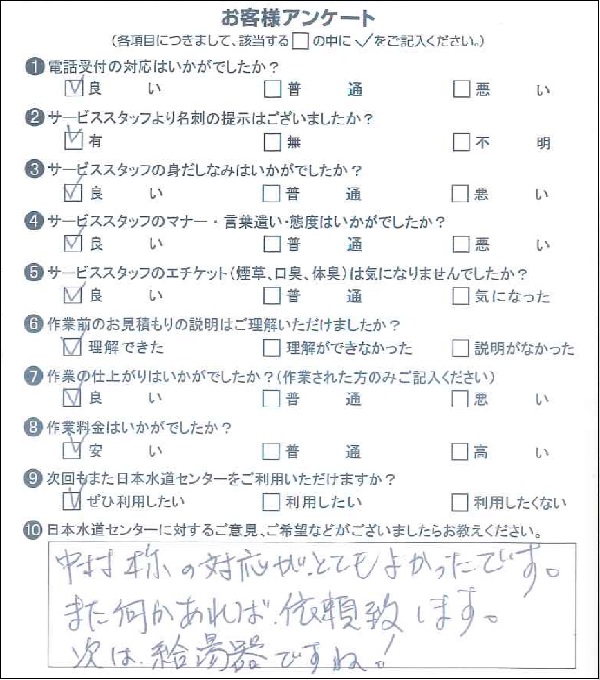 お客様アンケート
(各項目につきまして、該当する□の中に✓をご記入ください。)
❶電話受付の対応はいかがでしたか？
☑良い □普通 □悪い
❷サービススタッフより名刺の提示はございましたか？
☑有 □無 □不明
❸サービススタッフの身だしなみはいかがでしたか？
☑良い □普通 □悪い
❹サービススタッフのマナー・言葉遣い・態度はいかがでしたか？
☑良い □普通 □悪い
❺サービススタッフのエチケット(煙草、口臭、体臭)は気になりませんでしたか？
☑良い □普通 □気になった
❻作業前のお見積もりの説明はご理解いただけましたか？
☑理解できた □理解ができなかった □説明がなかった
❼作業の仕上がりはいかがでしたか？(作業された方のみご記入ください)
☑良い □普通 □悪い
❽作業料金はいかがでしたか？
☑安い □普通 □高い
❾次回もまた日本水道センターをご利用いただけますか？
☑ぜひ利用したい □利用したい □利用したくない
❿日本水道センターに対するご意見、ご希望などがございましたらお教えください。
中村様の対応が、とてもよかったです。
また何かあれば、依頼致します。
次は、給湯器ですね！